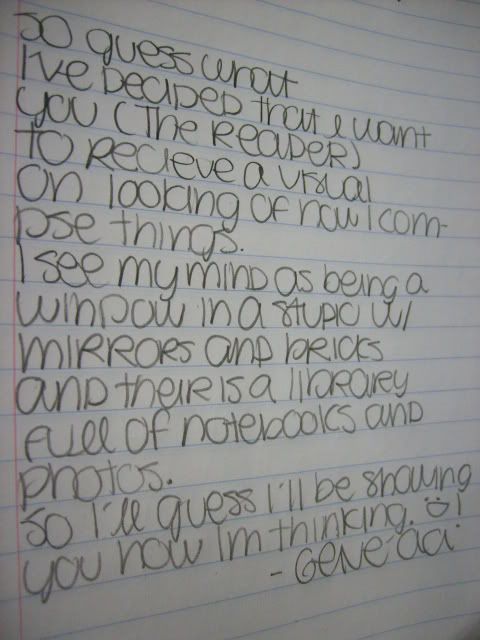 So guess what
I've DeciDeD that I want
you (The ReaDer)
To Recieve a visual
on looking of how I com-
pose things.
I see my minD as being a
winDow in a stupio w/
mirrors anD bricks
anD their is a librarey
full of notebooks anD
photos.
So I'll guess I'll be showing
you how Im thinking. :)!
- Gene